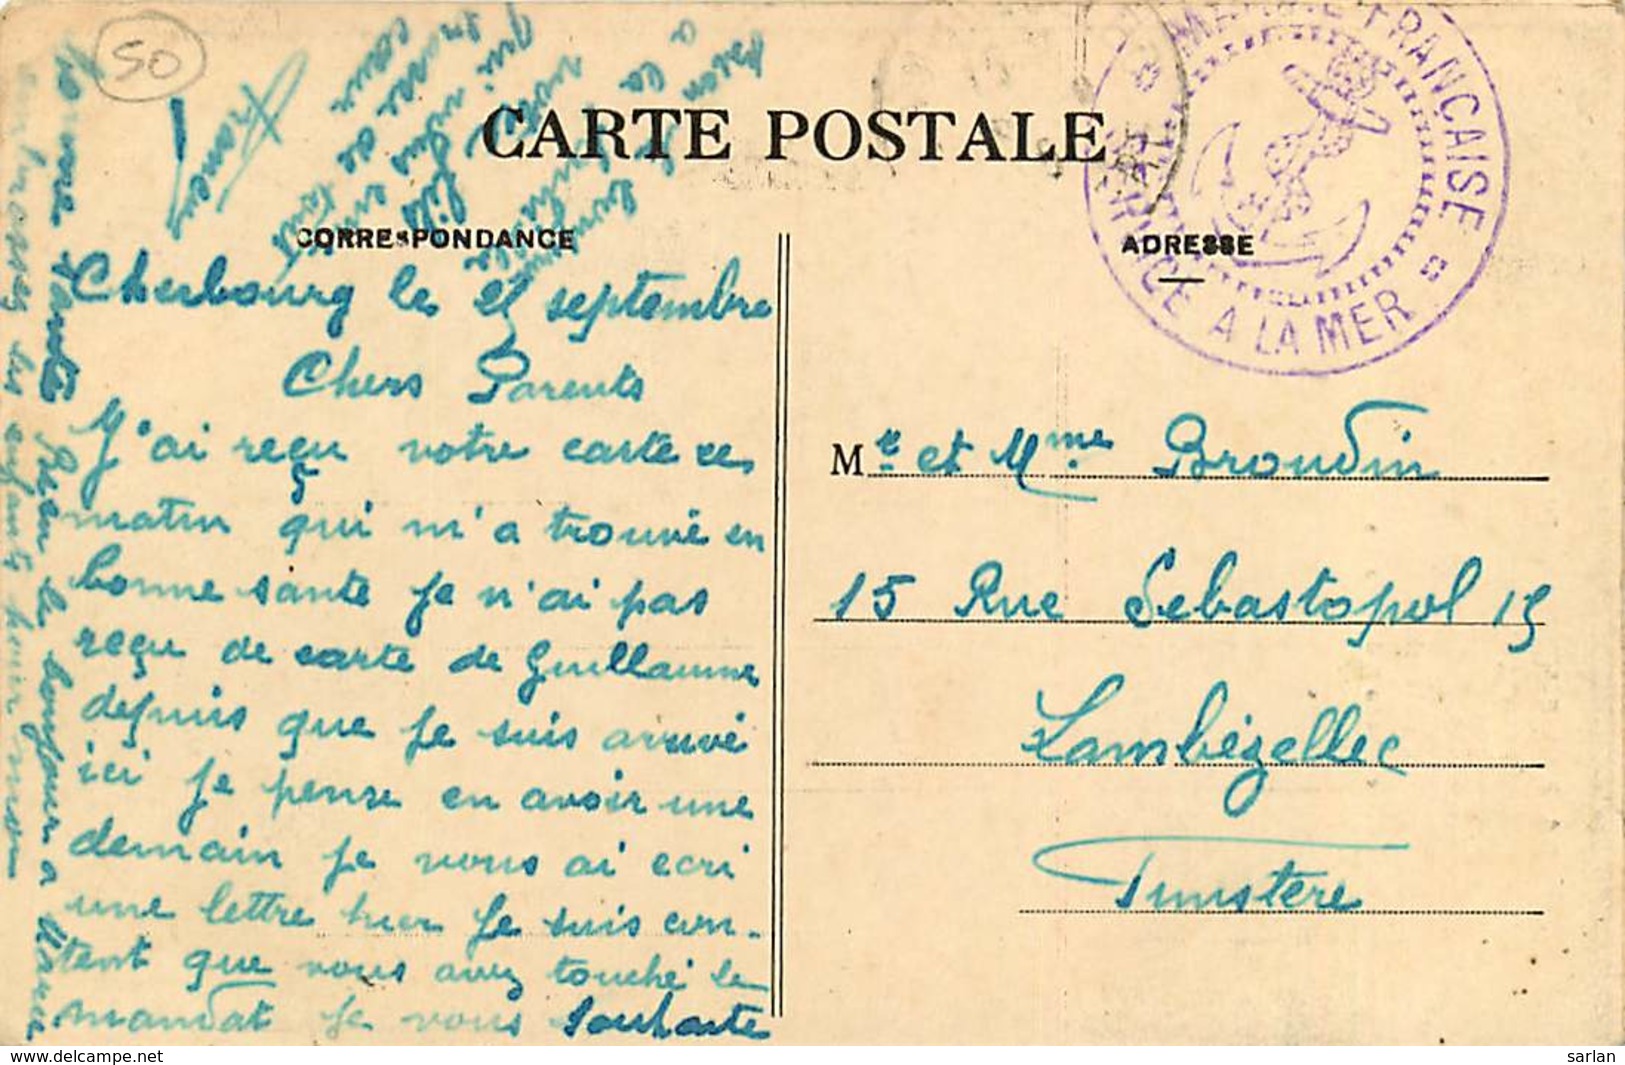 50
CARTE POSTALE
CORRESPONDANCE
ADRESSE
MARINE FRANÇAISE
SERVICE A LA MER
Cherbourg le 21 septembre
Chers Parents
J'ai reçu votre carte ce
matin qui m'a trouvé en
bonne santé je n'ai pas
reçu de carte de Guillaume
depuis que je suis arrivé
ici je pense en avoir une
demain je vous ai ecri
une lettre hier je suis con-
tent que vous avez touché le
mandat je vous souhaite
bonne santé
Bien le bonjour a
embrasser les enfants pour moi
votre fils
qui vous
de tout
coeur
Francis
Mr et Mme Broudin
15 Rue Sebastopol 15
Lambézellec
Finistère
sarlan
www.delcampe.net